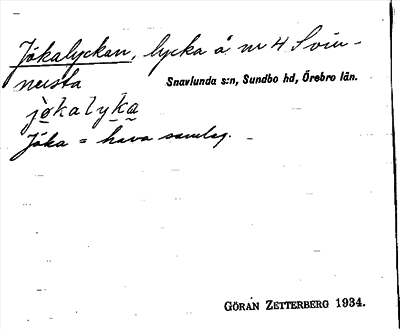 Jökalyckan, lycka å nr 4 Svin-
nersta
Snavlunda s:n, Sundbo hd, Örebro län.
jökalyka
Jöka = hava samlag.
GÖRAN ZETTERBERG 1934.